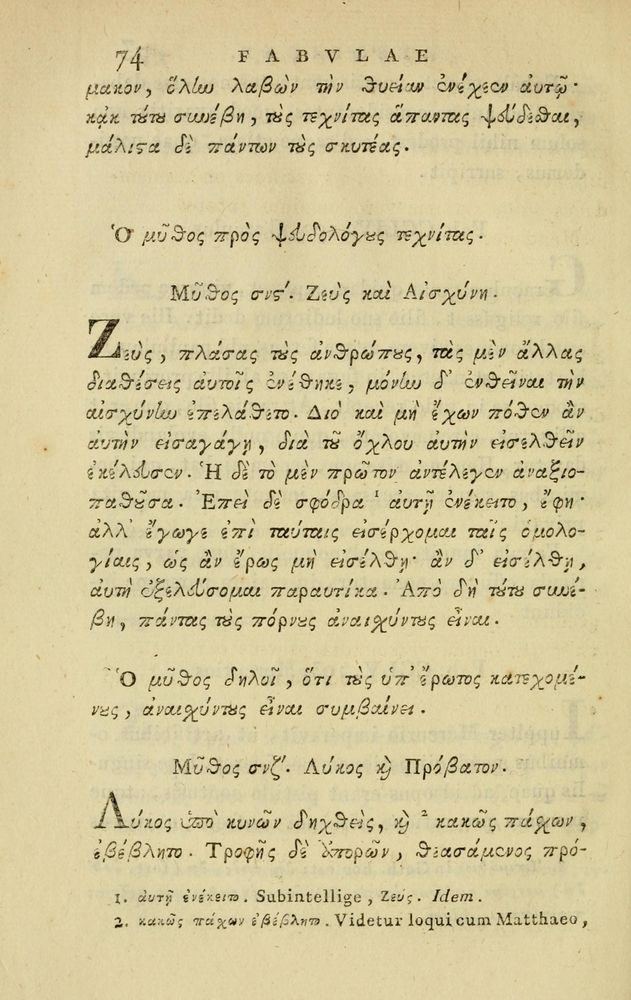 74 FABVLAE
μακον, ὅλην λαβὼν τὴν θυείαν ἐνέχεεν αὐτῷ·
κᾀκ τούτου συνέβη, τοὺς τεχνίτας ἅπαντας ψεύδεσθαι,
μάλιστα δὲ πάντων τοὺς σκυτέας.
Ὁ μῦθος πρὸς ψευδολόγους τεχνίτας.
Μῦθος σνϛʹ. Ζεὺς καὶ Αἰσχύνη.
Ζεὺς, πλάσας τοὺς ἀνθρώπους, τὰς μὲν ἄλλας
διαθέσεις αὐτοῖς ἐνέθηκε, μόνην δ' ἐνθεῖναι τὴν
αἰσχύνην ἐπελάθετο. Διὸ καὶ μὴ ἔχων πόθεν ἂν
αὐτὴν εἰσαγάγῃ, διὰ τοῦ ὄχλου αὐτὴν εἰσελθεῖν
ἐκέλευσεν. Ἡ δὲ τὸ μὲν πρῶτον ἀντέλεγεν ἀναξιο-
παθοῦσα. Ἐπεὶ δὲ σφόδρα ¹ αὐτῇ ἐνέκειτο, ἔφη·
ἀλλ' ἔγωγε ἐπὶ ταύταις εἰσέρχομαι ταῖς ὁμολο-
γίαις, ὡς ἂν ἔρως μὴ εἰσέλθῃ· ἂν δ' εἰσέλθῃ,
αὐτὴ ἐξελεύσομαι παραυτίκα. Ἀπὸ δὴ τούτου συνέ-
βη, πάντας τοὺς πόρνους ἀναισχύντους εἶναι.
Ὁ μῦθος δηλοῖ, ὅτι τοὺς ὑπ' ἔρωτος κατεχομέ-
νους, ἀναισχύντους εἶναι συμβαίνει.
Μῦθος σνζʹ. Λύκος καὶ Πρόβατον.
Λύκος ὑπὸ κυνῶν δηχθεὶς, καὶ ² κακῶς πάσχων,
ἐβέβλητο. Τροφῆς δὲ ἀπορῶν, θεασάμενος πρό-
1. αὐτῇ ἐνέκειτο. Subintellige, Ζεύς. Idem.
2. κακῶς πάσχων ἐβέβλητο. Videtur loqui cum Matthaeo,